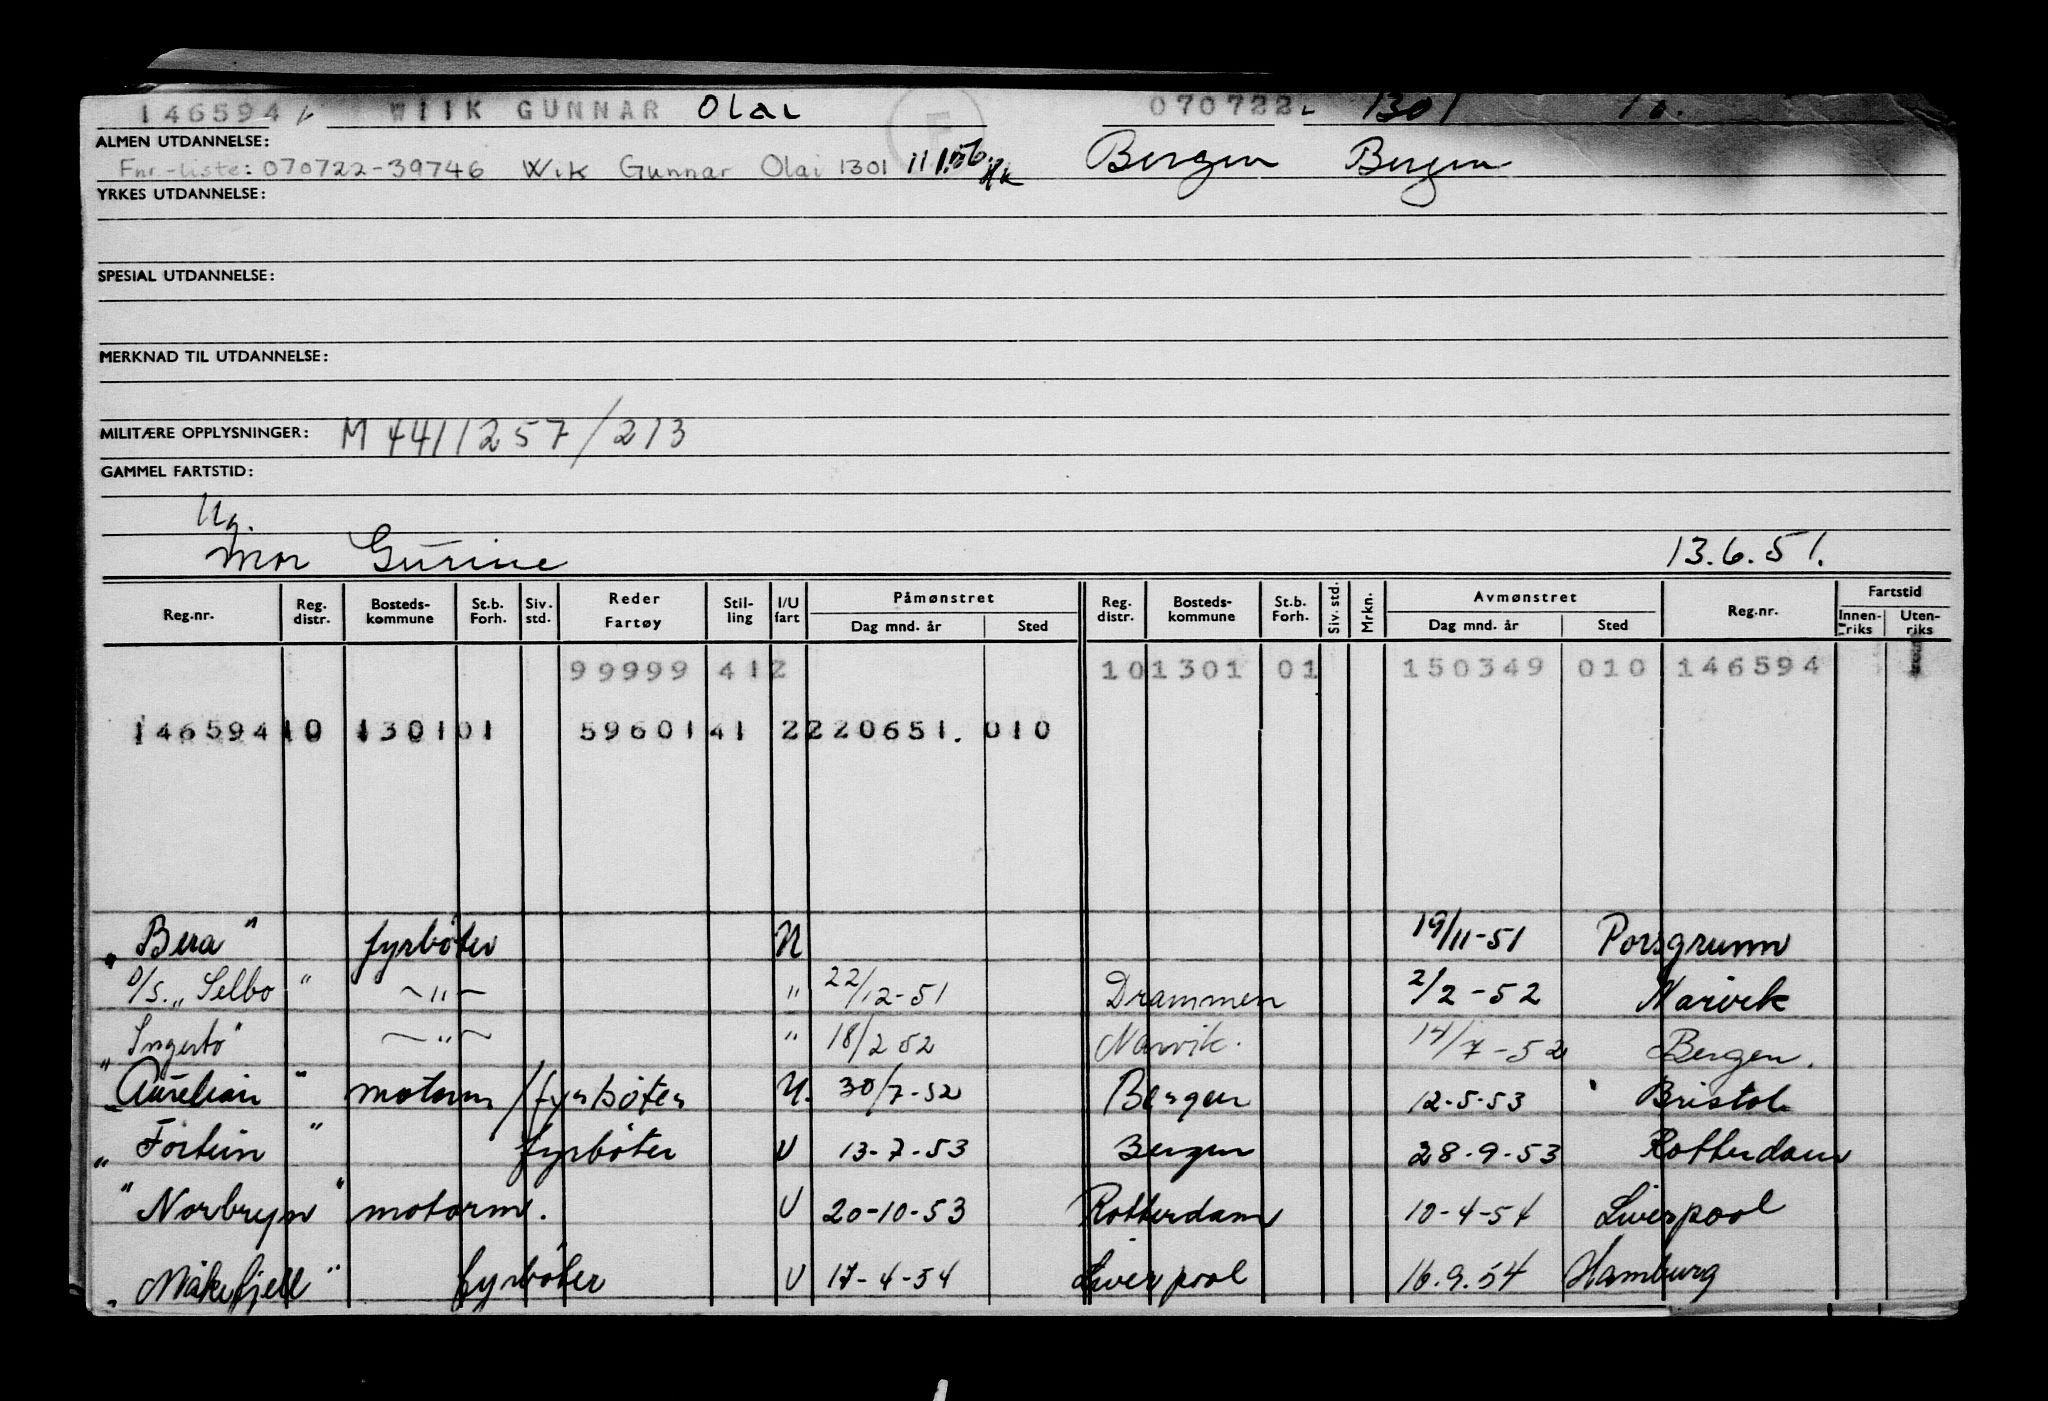 146594 WIIK GUNNAR Olai 070722 1301 10.
ALMEN UTDANNELSE:
Fnr.-liste: 070722-39746 Wik Gunnar Olai 1301 11 1.56 Bergen Bergen
YRKES UTDANNELSE:
SPESIAL UTDANNELSE:
MERKNAD TIL UTDANNELSE:
MILITÆRE OPPLYSNINGER: M 4411257/213
GAMMEL FARTSTID:
Ug.
Mor Gurine 13.6.51.
Reg.nr. Reg. distr. Bosteds-kommune St.b. Forh. Siv. std. Reder Fartøy Stil-ling I/U fart Påmønstret Dag mnd. år Sted Reg. distr. Bosteds-kommune St.b. Forh. Siv. std. Mrkn. Avmønstret Dag mnd. år Sted Reg.nr. Fartstid Innen-riks Uten-riks
99999 412 101301 01 150349 010 146594
146594 10 1301 01 59601 41 2 220651. 010
"Bera" fyrbøter U 19/11-51 Porsgrunn
D/S. "Selbo" -"- " 22/12-51 Drammen 2/2-52 Narvik
"Ingertö" -"- " 18/2 52 Narvik. 14/7-52 Bergen.
"Aurelian" motorm/fyrbøter U. 30/7-52 Bergen 12-5-53 Bristol
"Fortun" fyrbøter U 13-7-53 Bergen 28-9-53 Rotterdam
"Norbryn" motorm. U 20-10-53 Rotterdam 10-4-54 Liverpool
"Måkefjell" fyrbøter U 17-4-54 Liverpool 16.9.54 Hamburg